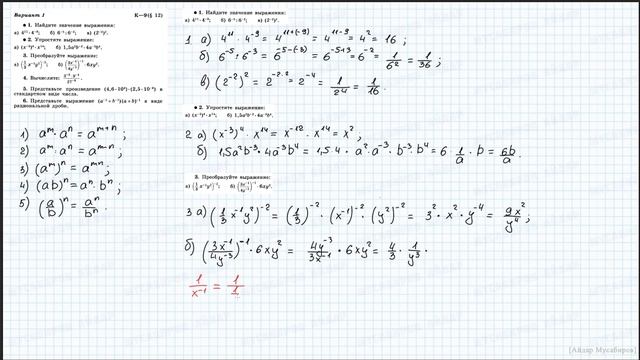 Вариант 1 К—9 (§ 12)
● 1. Найдите значение выражения:
а) 4¹¹ · 4⁻⁹; б) 6⁻⁵ : 6⁻³; в) (2⁻²)².
● 2. Упростите выражение:
а) (x⁻³)⁴ · x¹⁴; б) 1,5a²b⁻³ · 4a⁻³b⁴.
3. Преобразуйте выражение:
а) (1/3 x⁻¹y²)⁻²; б) (3x⁻¹/4y⁻³)⁻¹ · 6xy².
4. Вычислите:
5. Представьте произведение (4,6 · 10⁴) · (2,5 · 10⁻⁶) в
стандартном виде числа.
6. Представьте выражение (a⁻¹ + b⁻¹)(a + b)⁻¹ в виде
рациональной дроби.
1) aᵐ · aⁿ = aᵐ⁺ⁿ ;
2) aᵐ : aⁿ = aᵐ⁻ⁿ ;
3) (aᵐ)ⁿ = aᵐⁿ ;
4) (ab)ⁿ = aⁿ · bⁿ ;
5) (a/b)ⁿ = aⁿ/bⁿ .
● 1. Найдите значение выражения:
а) 4¹¹ · 4⁻⁹; б) 6⁻⁵ : 6⁻³; в) (2⁻²)².
1 а) 4¹¹ · 4⁻⁹ = 4¹¹⁺⁽⁻⁹⁾ = 4¹¹⁻⁹ = 4² = 16 ;
б) 6⁻⁵ : 6⁻³ = 6⁻⁵⁻⁽⁻³⁾ = 6⁻⁵⁺³ = 6⁻² = 1/6² = 1/36 ;
в) (2⁻²)² = 2⁻²·² = 2⁻⁴ = 1/2⁴ = 1/16 .
● 2. Упростите выражение:
а) (x⁻³)⁴ · x¹⁴; б) 1,5a²b⁻³ · 4a⁻³b⁴.
2 а) (x⁻³)⁴ · x¹⁴ = x⁻¹² · x¹⁴ = x² ;
б) 1,5a²b⁻³ · 4a⁻³b⁴ = 1,5 · 4 · a² · a⁻³ · b⁻³ · b⁴ = 6 · 1/a · b = 6b/a .
3. Преобразуйте выражение:
а) (1/3 x⁻¹y²)⁻²; б) (3x⁻¹/4y⁻³)⁻¹ · 6xy².
3 а) (1/3 x⁻¹y²)⁻² = (1/3)⁻² · (x⁻¹)⁻² · (y²)⁻² = 3² · x² · y⁻⁴ = 9x²/y⁴ ;
б) (3x⁻¹/4y⁻³)⁻¹ · 6xy² = 4y⁻³/3x⁻¹ · 6xy² = 4/3 · 1/y³ ·
1/x⁻¹ = 1/1
[Айдар Мусабиров]